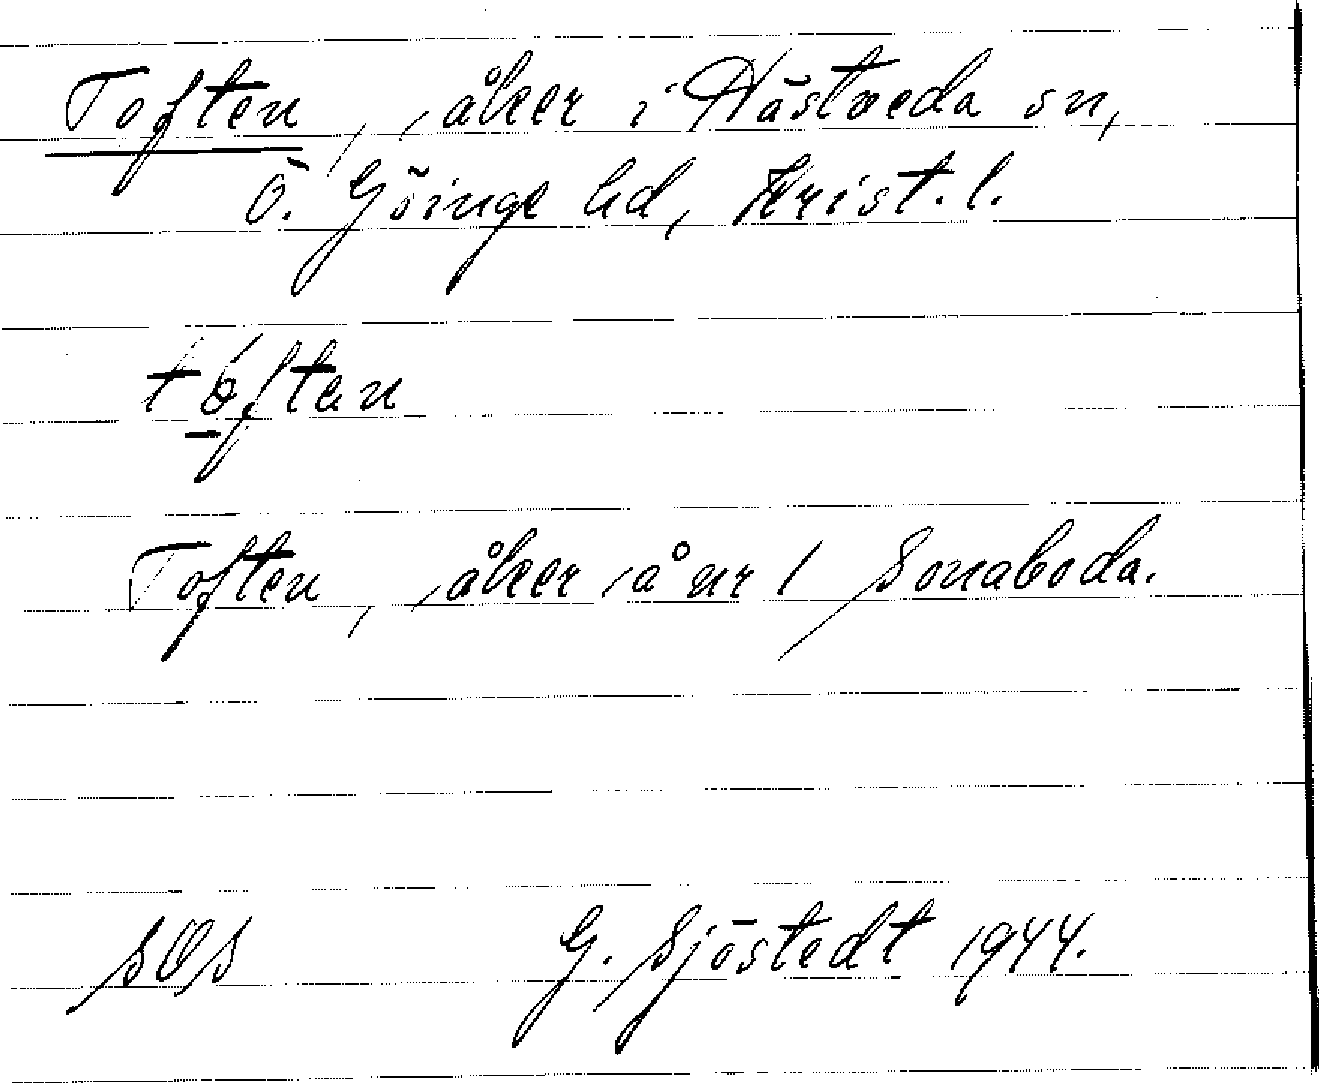 Toften, åker i Hästveda sn,
Ö. Göinge hd, Krist. l.
tóften
Toften, åker å nr 1 Sonaboda.
SOS G. Sjöstedt 1944.